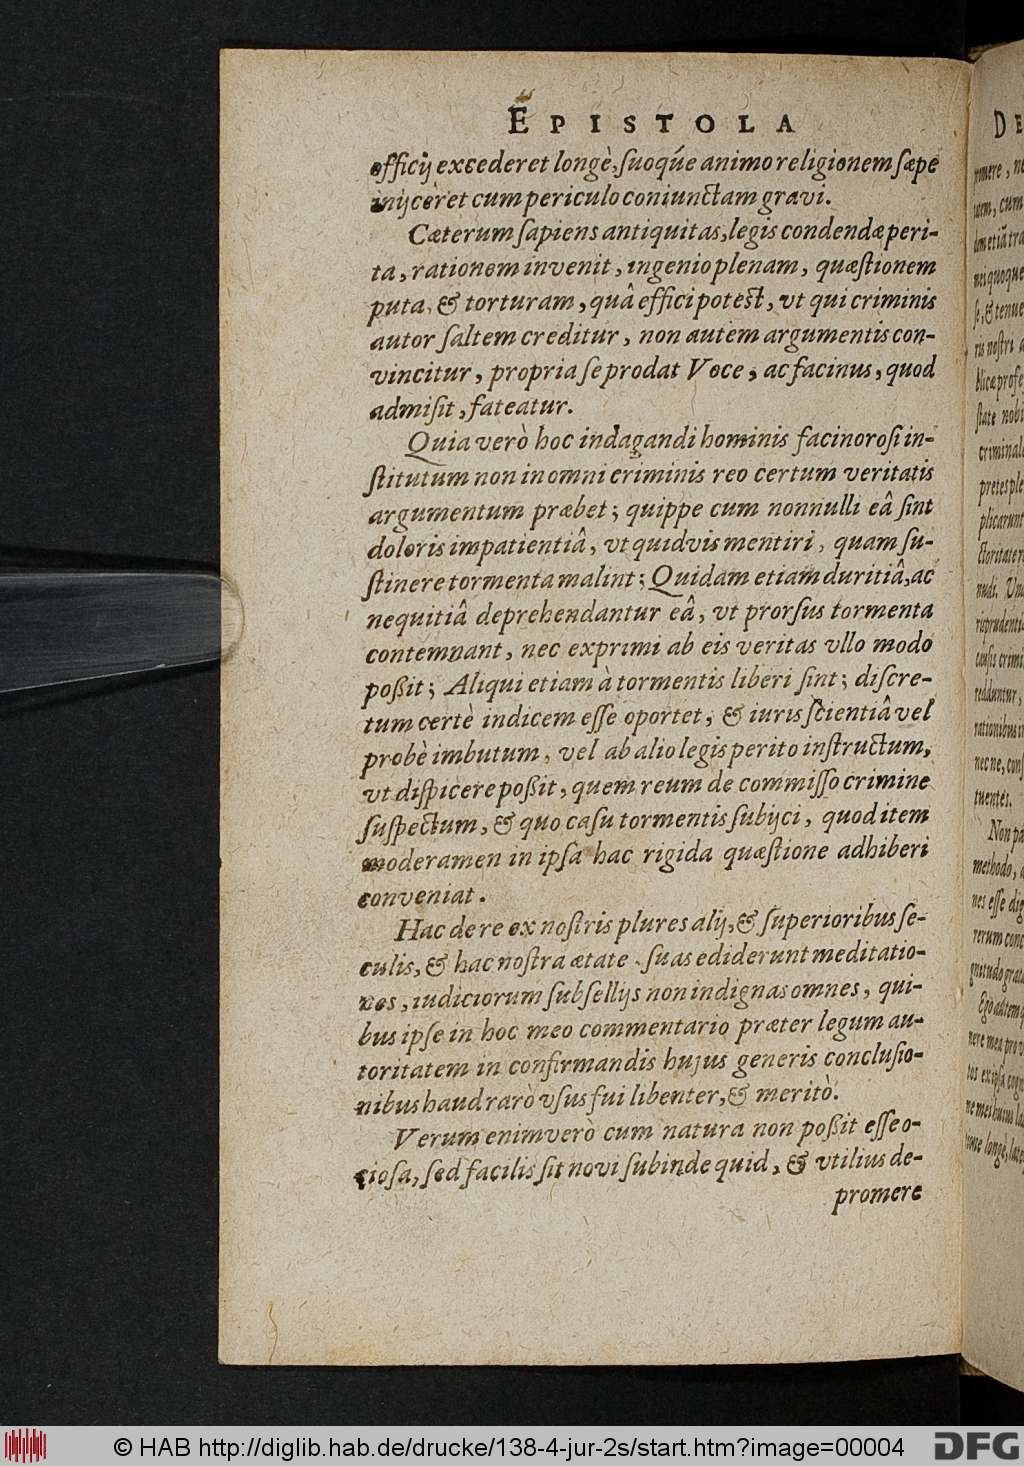 EPISTOLA
officij excederet longè, suoq́ue animo religionem sæpe
inijceret cum periculo coniunctam gravi.
Cæterum sapiens antiquitas, legis condendæ peri-
ta, rationem invenit, ingenio plenam, quæstionem
puta, & torturam, quâ effici potest, vt qui criminis
autor saltem creditur, non autem argumentis con-
vincitur, propria se prodat Voce, ac facinus, quod
admisit, fateatur.
Quia verò hoc indagandi hominis facinorosi in-
stitutum non in omni criminis reo certum veritatis
argumentum præbet; quippe cum nonnulli eâ sint
doloris impatientiâ, vt quidvis mentiri, quam su-
stinere tormenta malint; Quidam etiam duritiâ, ac
nequitiâ deprehendantur eâ, vt prorsus tormenta
contemnant, nec exprimi ab eis veritas vllo modo
poßit; Aliqui etiam à tormentis liberi sint; discre-
tum certè indicem esse oportet, & iuris scientiâ vel
probè imbutum, vel ab alio legis perito instructum,
vt dispicere poßit, quem reum de commisso crimine
suspectum, & quo casu tormentis subijci, quod item
moderamen in ipsa hac rigida quæstione adhiberi
conveniat.
Hac de re ex nostris plures alij, & superioribus se-
culis, & hac nostra ætate suas ediderunt meditatio-
nes, iudiciorum subsellijs non indignas omnes, qui-
bus ipse in hoc meo commentario præter legum au-
toritatem in confirmandis hujus generis conclusio-
nibus haud rarò vsus fui libenter, & meritò.
Verum enimverò cum natura non poßit esse o-
ciosa, sed facilis sit novi subinde quid, & vtilius de-
promere
DE
promere, ne
cum
etiã tra
quoque
se, & tenue
ris nostri a
blicæ profe
state nobi
criminal
pretes ple
plicarunt
ctoritate
nudi. Un
risprudenti
causis crimi
redduntur,
rationibus i
nec ne, cons
tuentes.
Non pa
methodo, a
nes esse dig
rerum conc
gnitudo grat
Ego autem q
nere mea pro v
tos ex ipsa cog
ne mes huius la
longè, late
© HAB http://diglib.hab.de/drucke/138-4-jur-2s/start.htm?image=00004
DFG